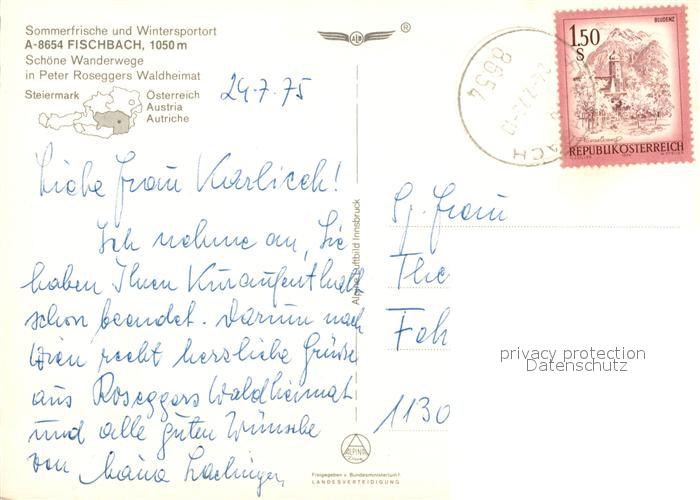 Sommerfrische und Wintersportort
A-8654 FISCHBACH, 1050 m
Schöne Wanderwege
in Peter Roseggers Waldheimat
Steiermark
Österreich
Austria
Autriche
24.7.75
Liebe Frau Karlicek!
Ich nehme an, Sie
haben Ihren Kuraufenthalt
schon beendet. Darum nach
Wien recht herzliche Grüsse
aus Roseggers Waldheimat
und alle guten Wünsche
von Maria
Alpine Luftbild Innsbruck
ALPINE
Freigegeben v. Bundesministerium f.
LANDESVERTEIDIGUNG
®
8654
BLUDENZ
1.50
S
REPUBLIK ÖSTERREICH
Frau
The
Feh
1130
privacy protection
Datenschutz